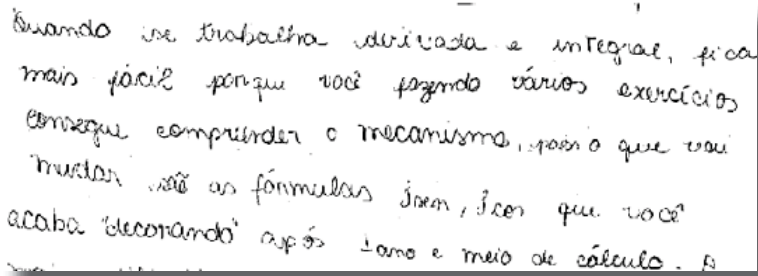 Quando se trabalha derivada e integral, fica
mais fácil porque você fazendo vários exercícios
consegue compreender o mecanismo, pois o que vai
mudar são as fórmulas ∫sen, ∫cos que você
acaba "decorando" após 1 ano e meio de cálculo. A